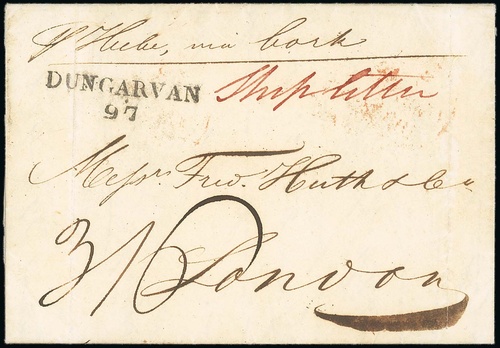 p Hebe, via Cork
DUNGARVAN
97
Ship letter
Messrs. Fred. Huth & Co.
3/6 London